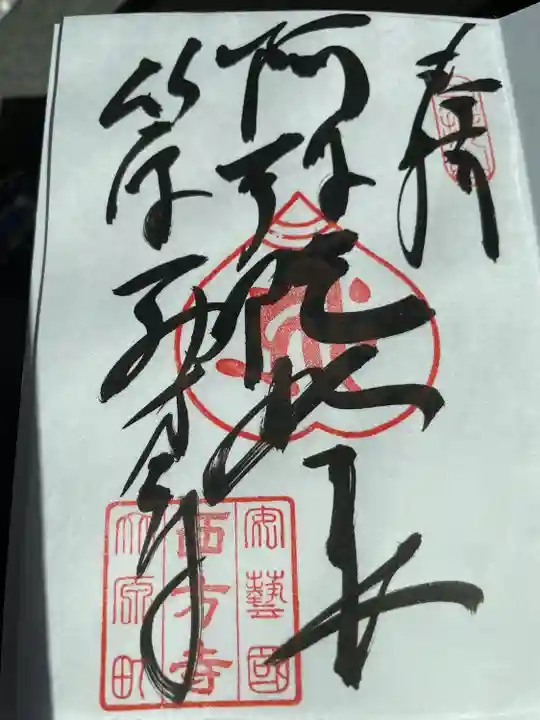 奉拝
阿弥陀如来
竹原
安藝國
西方寺
竹原町